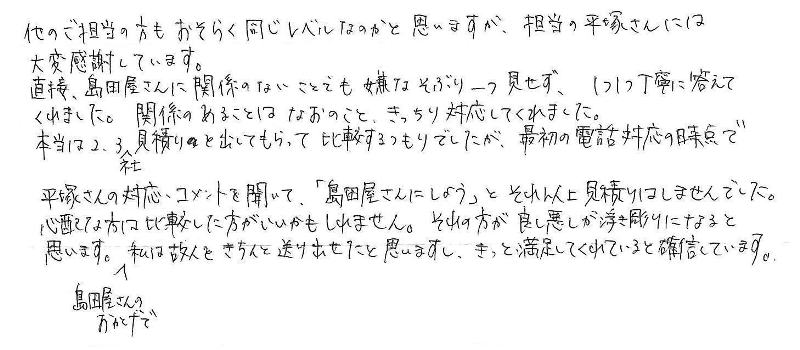 他のご担当の方もおそらく同じレベルなのかと思いますが、担当の平塚さんには
大変感謝しています。
直接、島田屋さんに関係のないことでも嫌なそぶり一つ見せず、1つ1つ丁寧に答えて
くれました。関係のあることはなおのこと、きっちり対応してくれました。
本当は2、3社見積りを出してもらって比較するつもりでしたが、最初の電話対応の時点で
平塚さんの対応、コメントを聞いて、「島田屋さんにしよう」とそれ以上見積りはしませんでした。
心配な方は比較した方がいいかもしれません。その方が良し悪しが浮き彫りになると
思います。島田屋さんのおかげで私は故人をきちんと送り出せたと思いますし、きっと満足してくれていると確信しています。